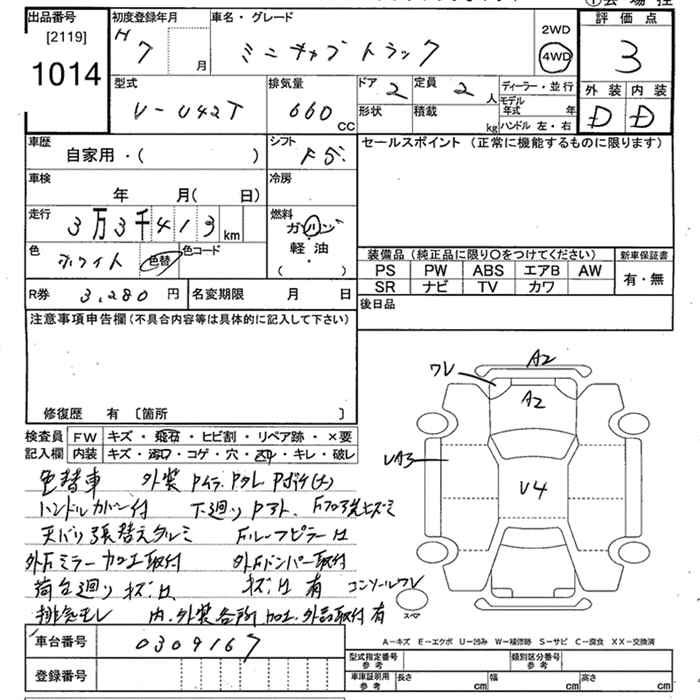 出品番号
[2119]
1014
初度登録年月
H 7 月
車名・グレード
ミニキャブトラック
2WD
4WD
評価点
3
型式
V-U42T
排気量
660 CC
ドア 2
定員 2 人
形状
積載 kg
ディーラー・並行
モデル年式 年
ハンドル 左・右
外装 内装
D D
車歴
自家用・( )
シフト
F5
セールスポイント (正常に機能するものに限ります)
車検
年 月( 日)
冷房
走行
3万3千413 km
燃料
ガソリン
軽油
( )
色
ホワイト
色替
色コード
装備品 (純正品に限り〇をつけてください)
新車保証書
PS PW ABS エアB AW
SR ナビ TV カワ
有・無
R券 3,280 円
名変期限 月 日
後日品
注意事項申告欄 (不具合内容等は具体的に記入して下さい)
修復歴 有 〔箇所 〕
検査員 FW キズ・飛石・ヒビ割・リペア跡・×要
記入欄 内装 キズ・汚れ・コゲ・穴・凹・キレ・破レ
色替車 外装
ハンドルカバー付 下廻り
天バリ張替えタルミ
外ミラー加工取付
荷台廻りキズ凹 キズ凹有 コンソールワレ
排気モレ 内・外装各所加工・外部取付有
ワレ
A2
A2
UA3
U4
スペア
A-キズ E-エクボ U-凹み W-補修跡 S-サビ C-腐食 XX-交換済
車台番号 0309167
登録番号
型式指定番号 参考
類別区分番号 参考
車庫証明用 参考
長さ cm
幅 cm
高さ cm